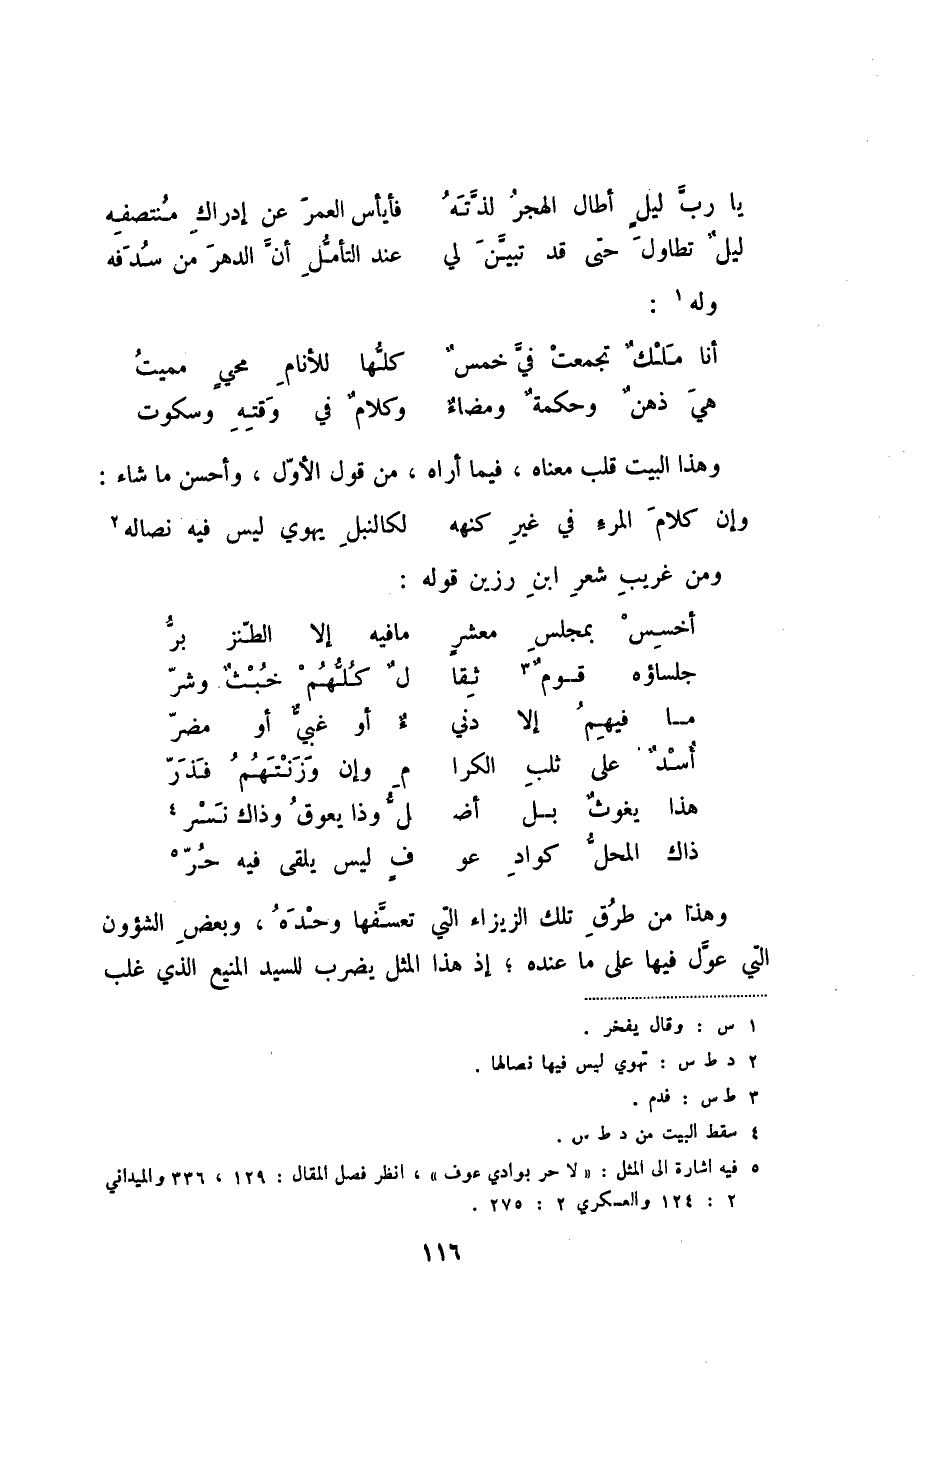 يا ربَّ ليلٍ أطال الهجرُ لذَّتَهُ فأيأس العمرَ عن إدراكِ مُنتصفِهِ
ليلٌ تطاولَ حتّى قد تبيَّنَ لي عند التأمُّلِ أنَّ الدهرَ من سُدَفه
وله ١ :
أنا مَلْكٌ تجمعتْ فيَّ خمسٌ كلُّها للأنامِ محيٍ مميتُ
هيَ ذهنٌ وحكمةٌ ومضاءٌ وكلامٌ في وَقتِهِ وسكوت
وهذا البيت قلب معناه ، فيما أراه ، من قول الأوّل ، وأحسن ما شاء :
وإن كلامَ المرءِ في غيرِ كنهه لكالنبلِ يهوي ليس فيه نصاله ٢
ومن غريبِ شعرِ ابنِ رزين قوله :
أخسِسْ بمجلسِ معشرٍ مافيه إلا الطّنز برُّ
جلساؤه قومٌ ٣ ثِقا لٌ كُلُّهُمْ خُبْثٌ وشرّ
ما فيهِمُ إلا دني ءٌ أو غبيٌّ أو مضرّ
أُسْدٌ على ثلبِ الكرا مِ وإن وَزَنْتَهُمُ فَذَرّ
هذا يغوثٌ بل أض لُّ وذا يعوقُ وذاك نَسْر ٤
ذاك المحلُّ كوادِ عو فٍ ليس يلقى فيه حُرّ ٥
وهذا من طرُقِ تلك الزيزاء التي تعسَّفها وحْدَهُ ، وبعضِ الشؤون
التي عوَّل فيها على ما عنده ؛ إذ هذا المثل يضرب للسيد المنيع الذي غلب
١ س : وقال يفخر .
٢ د ط س : تهوي ليس فيها نصالها .
٣ ط س : فدم .
٤ سقط البيت من د ط س .
٥ فيه اشارة الى المثل : « لا حر بوادي عوف » ، انظر فصل المقال : ١٢٩ ، ٣٣٦ والميداني
٢ : ١٢٤ والعسكري ٢ : ٢٧٥ .
١١٦